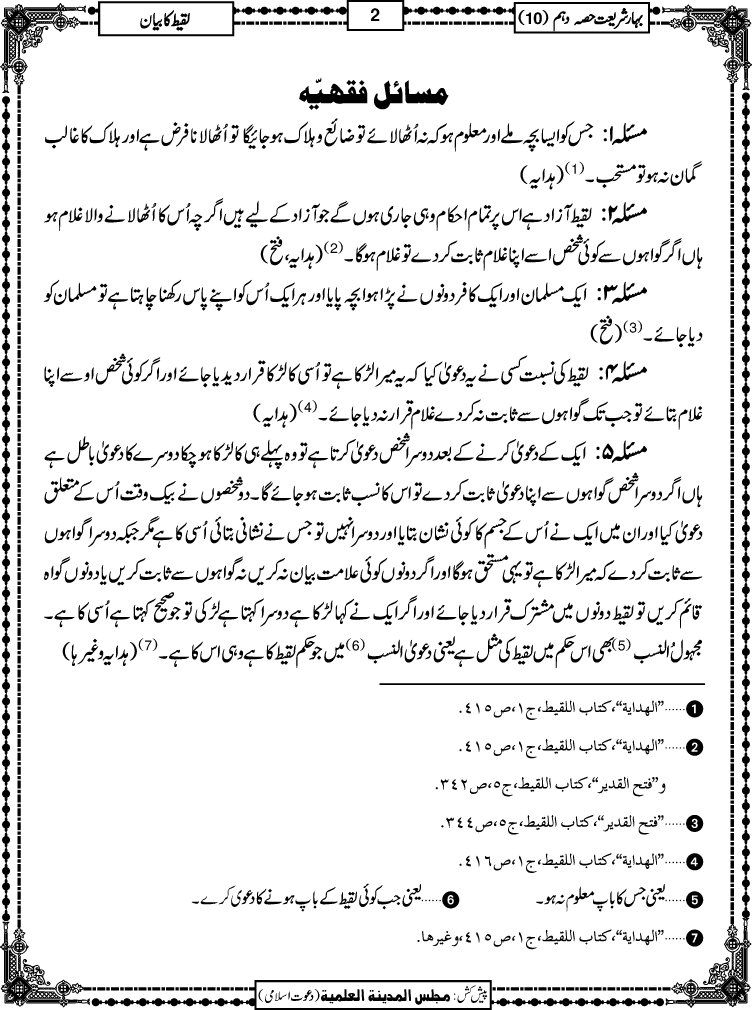 بہارِ شریعت حصہ دہم (10)
2
لقیط کا بیان
مسائل فقهیّه
مسئلہ ۱: جس کو ایسا بچہ ملے اور معلوم ہو کہ نہ اُٹھا لائے تو ضائع و ہلاک ہو جائیگا تو اُٹھا لانا فرض ہے اور ہلاک کا غالب
گمان نہ ہو تو مستحب۔(1) (ہدایہ)
مسئلہ ۲: لقیط آزاد ہے اس پر تمام احکام وہی جاری ہوں گے جو آزاد کے لیے ہیں اگرچہ اُس کا اُٹھا لانے والا غلام ہو
ہاں اگر گواہوں سے کوئی شخص اسے اپنا غلام ثابت کر دے تو غلام ہوگا۔(2) (ہدایہ، فتح)
مسئلہ ۳: ایک مسلمان اور ایک کافر دونوں نے پڑا ہوا بچہ پایا اور ہر ایک اُس کو اپنے پاس رکھنا چاہتا ہے تو مسلمان کو
دیا جائے۔(3) (فتح)
مسئلہ ۴: لقیط کی نسبت کسی نے یہ دعویٰ کیا کہ یہ میرا لڑکا ہے تو اُسی کا لڑکا قرار دیدیا جائے اور اگر کوئی شخص اوسے اپنا
غلام بتائے تو جب تک گواہوں سے ثابت نہ کر دے غلام قرار نہ دیا جائے۔(4) (ہدایہ)
مسئلہ ۵: ایک کے دعویٰ کرنے کے بعد دوسرا شخص دعویٰ کرتا ہے تو وہ پہلے ہی کا لڑکا ہو چکا دوسرے کا دعویٰ باطل ہے
ہاں اگر دوسرا شخص گواہوں سے اپنا دعویٰ ثابت کر دے تو اس کا نسب ثابت ہو جائے گا۔ دو شخصوں نے بیک وقت اُس کے متعلق
دعویٰ کیا اور ان میں ایک نے اُس کے جسم کا کوئی نشان بتایا اور دوسرا نہیں تو جس نے نشانی بتائی اُسی کا ہے مگر جبکہ دوسرا گواہوں
سے ثابت کر دے کہ میرا لڑکا ہے تو یہی مستحق ہوگا اور اگر دونوں کوئی علامت بیان نہ کریں نہ گواہوں سے ثابت کریں یا دونوں گواہ
قائم کریں تو لقیط دونوں میں مشترک قرار دیا جائے اور اگر ایک نے کہا لڑکا ہے دوسرا کہتا ہے لڑکی تو جو صحیح کہتا ہے اُسی کا ہے۔
مجہولُ النسب (5) بھی اس حکم میں لقیط کی مثل ہے یعنی دعویٰ النسب (6) میں جو حکم لقیط کا ہے وہی اس کا ہے۔(7) (ہدایہ وغیرہا)
❶......"الهداية"، كتاب اللقيط، ج١، ص٤١٥.
❷......"الهداية"، كتاب اللقيط، ج١، ص٤١٥.
و"فتح القدير"، كتاب اللقيط، ج٥، ص٣٤٢.
❸......"فتح القدير"، كتاب اللقيط، ج٥، ص٣٤٤.
❹......"الهداية"، كتاب اللقيط، ج١، ص٤١٦.
❺......یعنی جس کا باپ معلوم نہ ہو۔ ❻......یعنی جب کوئی لقیط کے باپ ہونے کا دعویٰ کرے۔
❼......"الهداية"، كتاب اللقيط، ج١، ص٤١٥، وغيرها.
پیش کش: مجلس المدینة العلمیة (دعوت اسلامی)